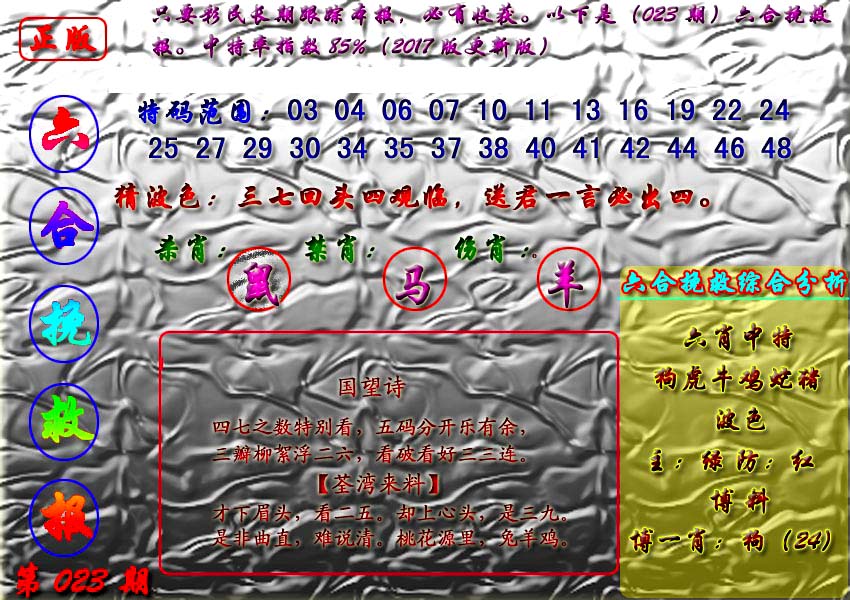 正版
只要彩民长期跟踪本报，必有收获。以下是（023 期）六合挽救
报。中特率指数 85%（2017 版更新版）
六
合
挽
救
报
第 023 期
特码范围：03 04 06 07 10 11 13 16 19 22 24
25 27 29 30 34 35 37 38 40 41 42 44 46 48
猜波色：三七回头四观临，送君一言必出四。
杀肖：鼠 禁肖：马 伤肖：羊
国望诗
四七之数特别看，五码分开乐有余，
三瓣柳絮浮二六，看破看好三三连。
【荃湾来料】
才下眉头，看二五。却上心头，是三九。
是非曲直，难说清。桃花源里，兔羊鸡。
六合挽救综合分析
六肖中特
狗虎牛鸡蛇猪
波色
主：绿防：红
博料
博一肖：狗（24）